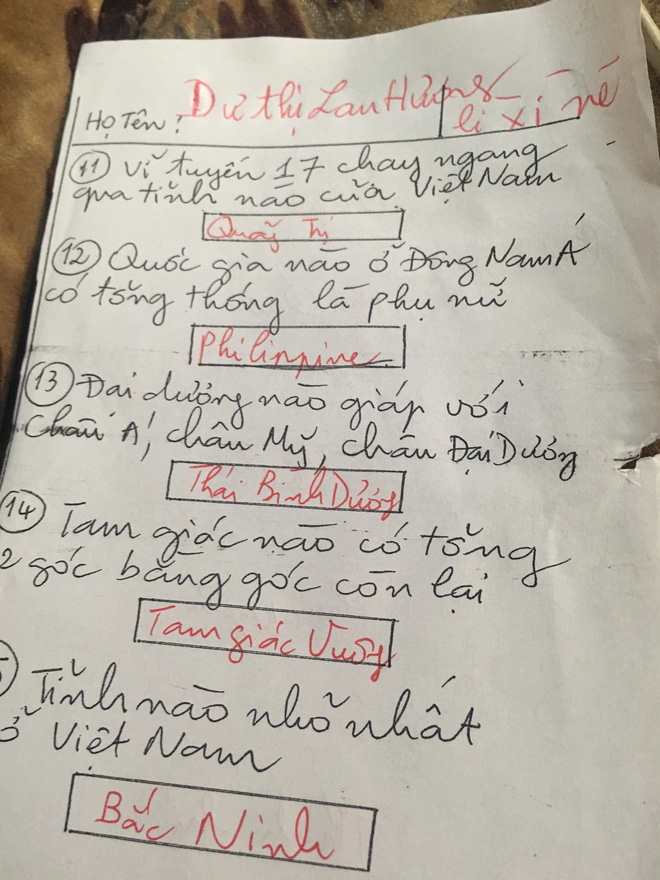 Họ Tên: Dư Thị Lan Hương
lì xì né
11 Vĩ tuyến 17 chạy ngang
qua tỉnh nào của Việt Nam
Quảng Trị
12 Quốc gia nào ở Đông Nam Á
có tổng thống là phụ nữ
Philippine
13 Đại dương nào giáp với
Châu Á, châu Mỹ, châu Đại Dương
Thái Bình Dương
14 Tam giác nào có tổng
2 góc bằng góc còn lại
Tam giác Vuông
Tỉnh nào nhỏ nhất
ở Việt Nam
Bắc Ninh